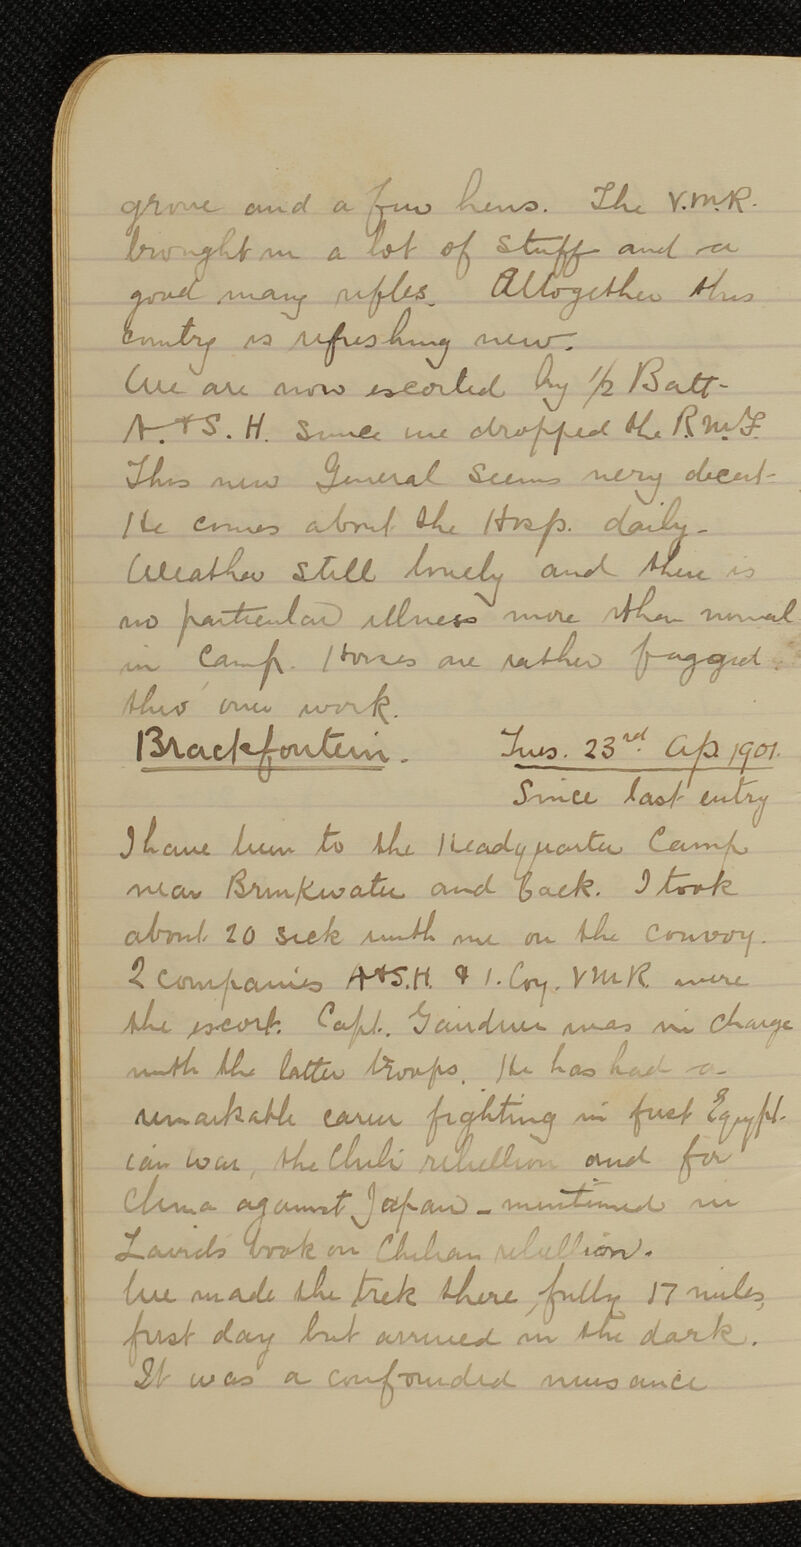 grove and a few hens. The V.M.R.
brought in a lot of stuff and a
good many rifles. Altogether this
country is refreshing new.
We are now escorted by 1/2 Batt-
A. & S. H. since we dropped the R.M.F.
This new General seems very decent-
He comes about the Hosp. daily-
Weather still lovely and there is
no particular illness more than normal
in Camp. Horses are rather fagged
thro' over work.
Brackfontein. Tues. 23rd Ap 1901.
Since last entry
I have been to the Headquarter Camp
near Brinkwater and back. I took
about 20 sick with me on the convoy.
2 companies A&S.H. & 1. Coy. VMR. were
the escort. Capt. Gardner was in charge
with the latter troops. He has had a
remarkable career fighting in first Egypt-
ian war, the Chili rebellion and for
China against Japan - mentioned in
Lairds book on Chilian rebellion.
We made the trek there, fully 17 miles,
first day but arrived in the dark.
It was a confounded nuisance